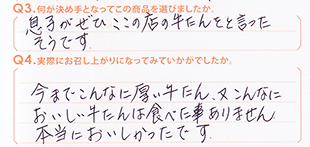 Q3.何が決め手となってこの商品を選びましたか。
息子がぜひここの店の牛たんをと言った
そうです
Q4.実際にお召し上がりになってみていかがでしたか。
今までこんなに厚い牛たん、又こんなに
おいしい牛たんは食べた事ありません
本当においしかったです